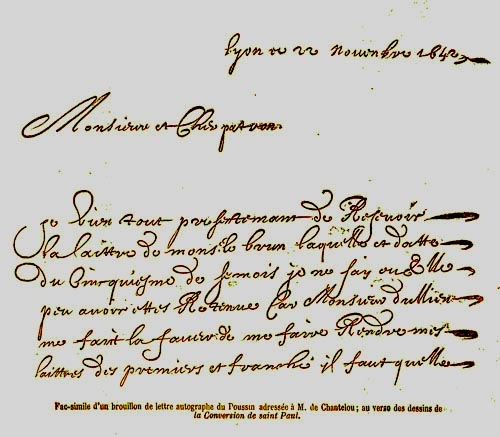 Lyon ce 22 Novenbre 1642
Monsieur et Cher patron
Je vien tout presentemant de Resevoir
la laittre de mons. le brun laquelle et datte
du Cinquiesme de se mois je ne say ou elle
peu avoir ettes Retenue Car Monsieur du Lieu
me fait la faveur de me faire Rendre mes
laittres des premiers et franche il faut quelle
Fac-simile d'un brouillon de lettre autographe du Poussin adressée à M. de Chantelou; au verso des dessins de
la Conversion de saint Paul.